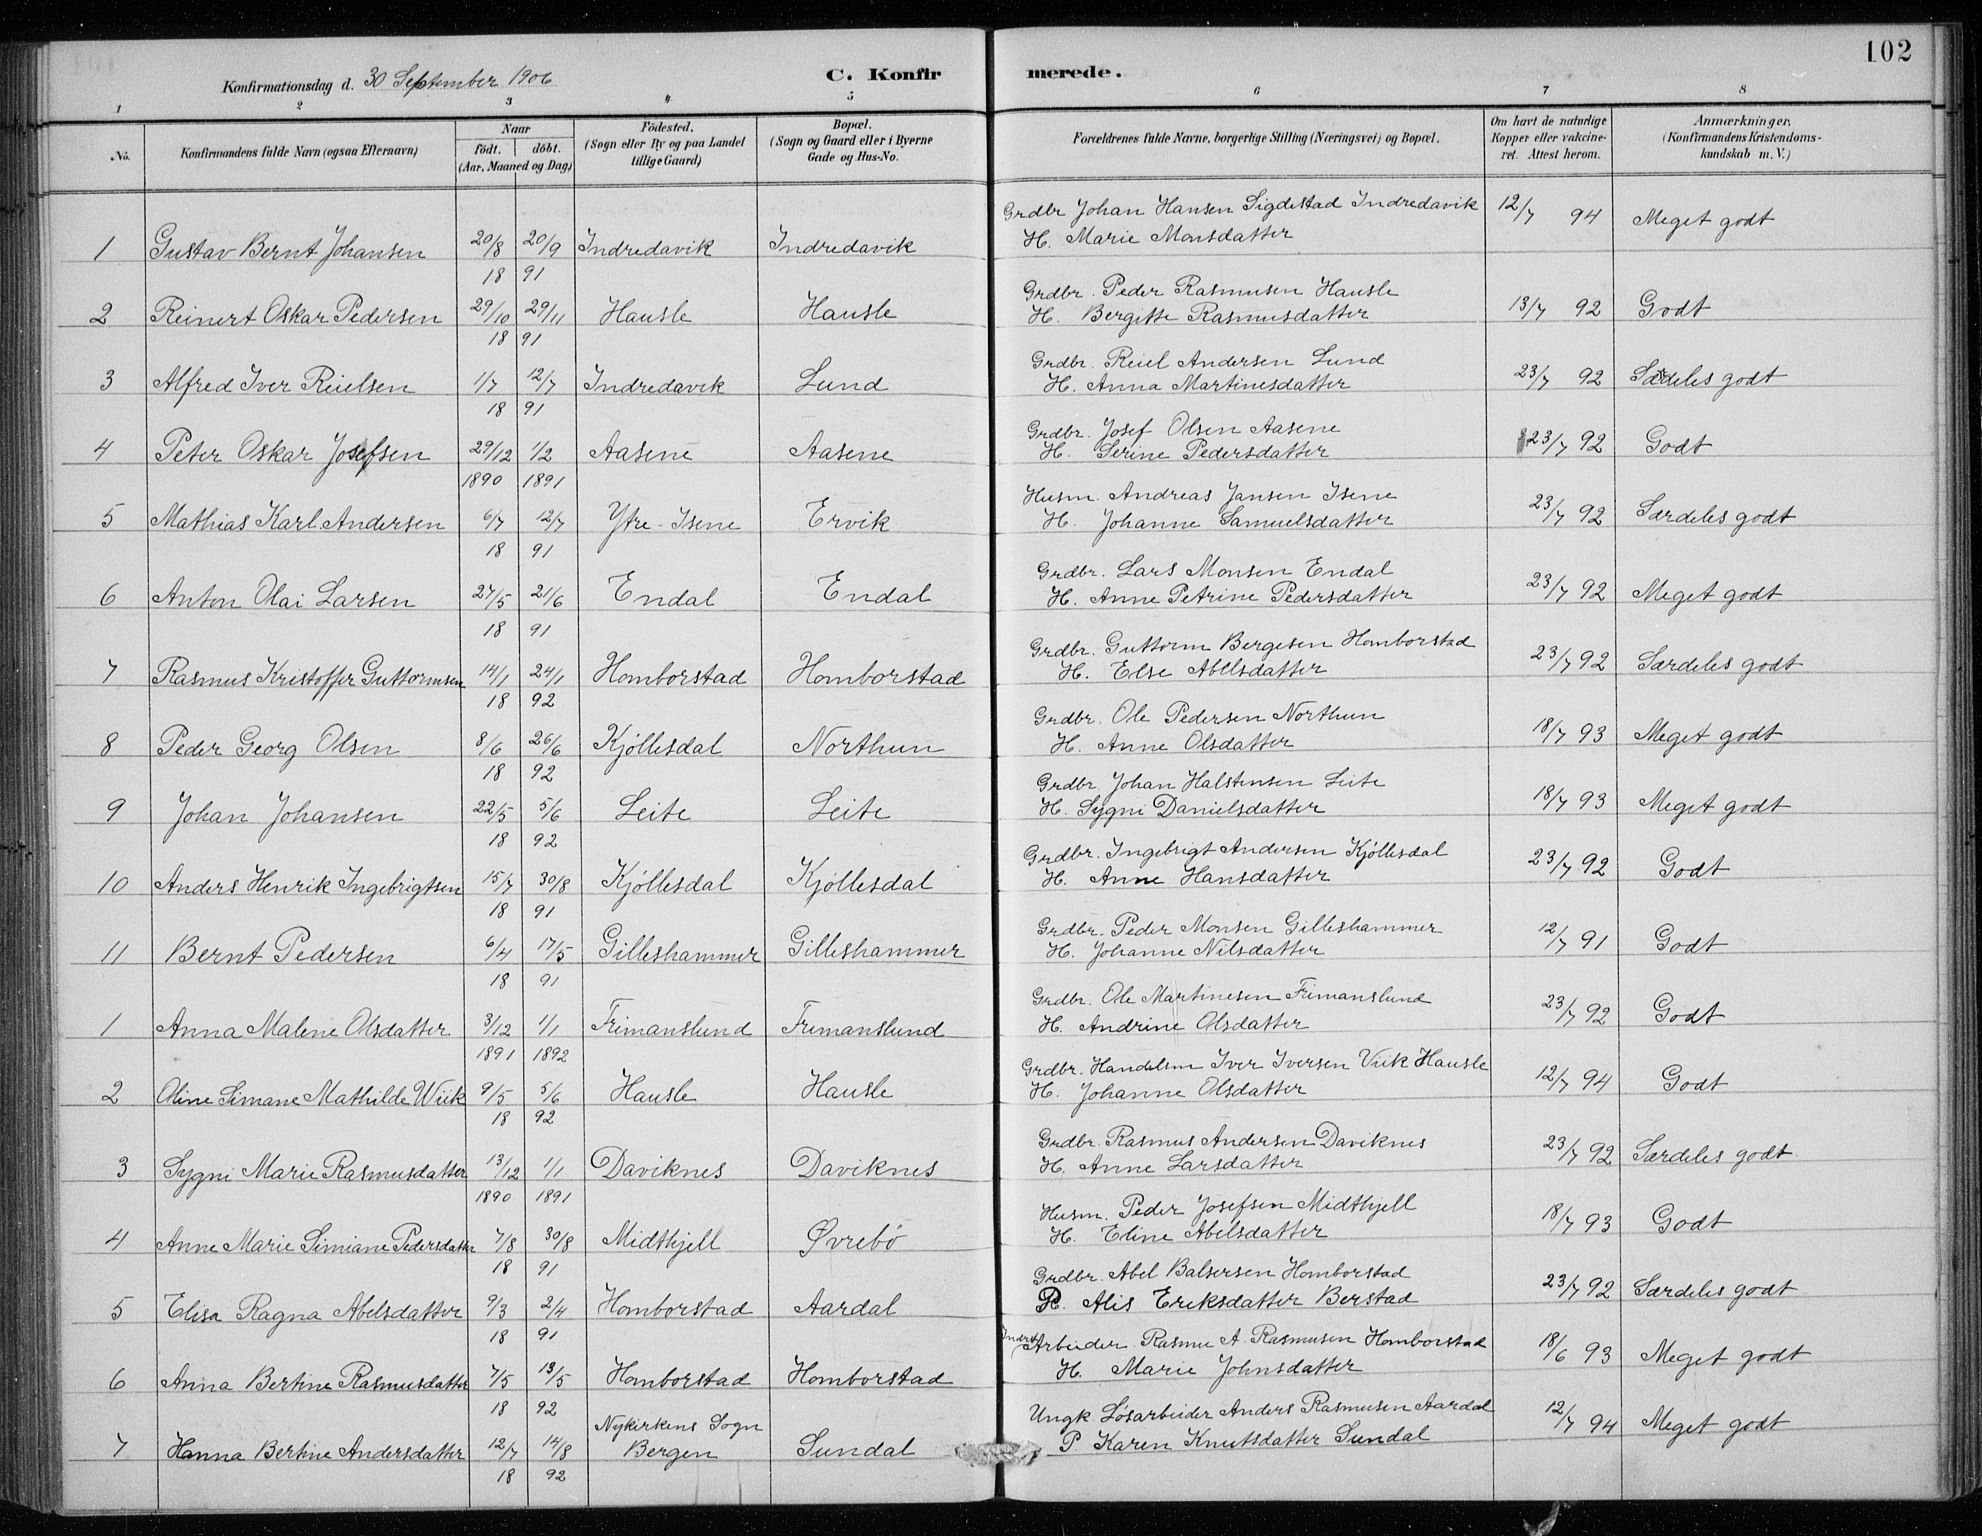 102
Konfirmationsdag d. 30 September 1906
C. Konfir merede.
1 2 3 4 5 6 7 8
No. Konfirmandens fulde Navn (ogsaa Efternavn) Naar født. døbt. (Aar, Maaned og Dag) Fødested. (Sogn eller By og paa Landet tillige Gaard) Bopæl. (Sogn og Gaard eller i Byerne Gade og Hus-No. Forældrenes fulde Navne, borgerlige Stilling (Næringsvei) og Bopæl. Om havt de naturlige Kopper eller vakcineret. Attest herom. Anmærkninger. (Konfirmandens Kristendomskundskab m. V.)
Grdbr Johan Hansen Sigdestad Indredavik 12/7 94 Meget godt
1 Gustav Bernt Johansen 20/8 20/9 Indredavik Indredavik H. Marie Monsdatter
18 91
Grdbr. Peder Rasmusen Hausle
2 Reinert Oskar Pedersen 29/10 29/11 Hausle Hausle H. Bergitte Rasmusdatter 13/7 92 Godt
18 91
Grdbr. Reiel Andersen Lund
3 Alfred Iver Reielsen 1/7 12/7 Indredavik Lund H. Anna Martinesdatter 23/7 92 Særdeles godt
18 91
Grdbr. Josef Olsen Aasene
4 Peter Oskar Josefsen 29/12 1/2 Aasene Aasene H. Serine Pedersdatter 23/7 92 Godt
1890 1891
Husm. Andreas Jansen Isene
5 Mathias Karl Andersen 6/7 12/7 Ytre-Isene Ervik H. Johanne Samuelsdatter 23/7 92 Særdeles godt
18 91
Grdbr. Lars Monsen Endal
6 Anton Olai Larsen 27/5 21/6 Endal Endal H. Anne Petrine Pedersdatter 23/7 92 Meget godt
18 91
Grdbr. Guttorm Bergesen Homborstad
7 Rasmus Kristoffer Guttormsen 14/1 24/1 Homborstad Homborstad H. Else Abelsdatter 23/7 92 Særdeles godt
18 92
Grdbr. Ole Pedersen Northun
8 Peder Georg Olsen 8/6 26/6 Kjøllesdal Northun H. Anne Olsdatter 18/7 93 Meget godt
18 92
Grdbr. Johan Halstensen Leite
9 Johan Johansen 22/5 5/6 Leite Leite H. Sygni Danielsdatter 18/7 93 Meget godt
18 92
Grdbr. Ingebrigt Andersen Kjøllesdal
10 Anders Henrik Ingebrigtsen 15/7 30/8 Kjøllesdal Kjøllesdal H. Anne Hansdatter 23/7 92 Godt
18 91
Grdbr. Peder Monsen Gilleshammer
11 Bernt Pedersen 6/4 17/5 Gilleshammer Gilleshammer H. Johanne Nilsdatter 12/7 91 Godt
18 91
Grdbr. Ole Martinesen Frimanslund
1 Anna Malene Olsdatter 3/12 1/1 Frimanslund Frimanslund H. Andrine Olsdatter 23/7 92 Godt
1891 1892
Grdbr. Handelsm Iver Iversen Viik Hausle
2 Oline Simane Mathilde Wiik 9/5 5/6 Hausle Hausle H. Johanne Olsdatter 12/7 94 Godt
18 92
Grdbr. Rasmus Andersen Daviknes
3 Sygni Marie Rasmusdatter 13/12 1/1 Daviknes Daviknes H. Anne Larsdatter 23/7 92 Særdeles godt
1890 1891
Husm. Peder Josefsen Midthjell
4 Anne Marie Simiane Pedersdatter 7/8 30/8 Midthjell Øvrebø H. Eline Abelsdatter 18/7 93 Godt
18 91
Grdbr. Abel Balsersen Homborstad
5 Elisa Ragna Abelsdatter 9/3 2/4 Homborstad Aardal P. Alis Eriksdatter Berstad 23/7 92 Særdeles godt
18 91
Arbeider Rasmus A. Rasmusen Homborstad
6 Anna Bertine Rasmusdatter 7/5 13/5 Homborstad Homborstad H. Marie Johnsdatter 18/6 93 Meget godt
18 92
Ungk. Løsarbeider Anders Rasmusen Aardal
7 Hanna Bertine Andersdatter 12/7 14/8 Nykirkens Sogn Bergen Sundal P Karen Knutsdatter Sundal 12/7 94 Meget godt
18 92